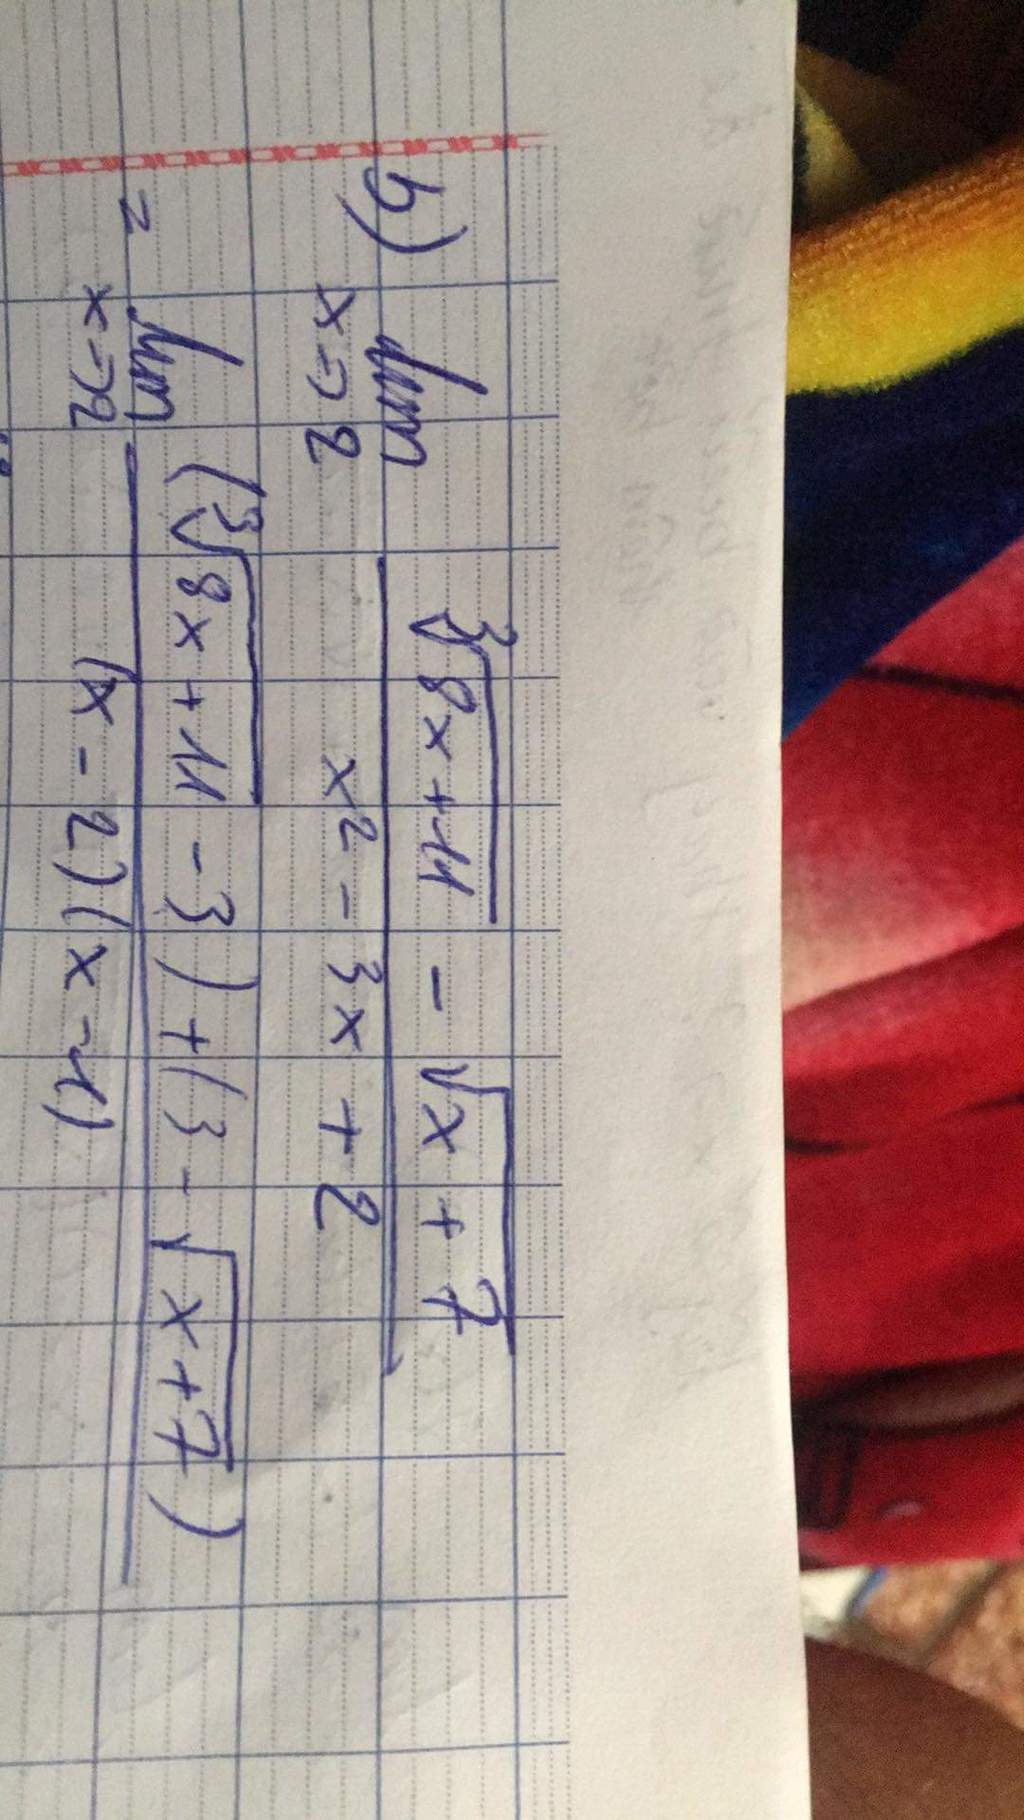 b) lim x→2 (∛(8x+11) - √(x+7)) / (x² - 3x + 2)
= lim x→2 ((∛(8x+11) - 3) + (3 - √(x+7))) / ((x - 2)(x - 1))